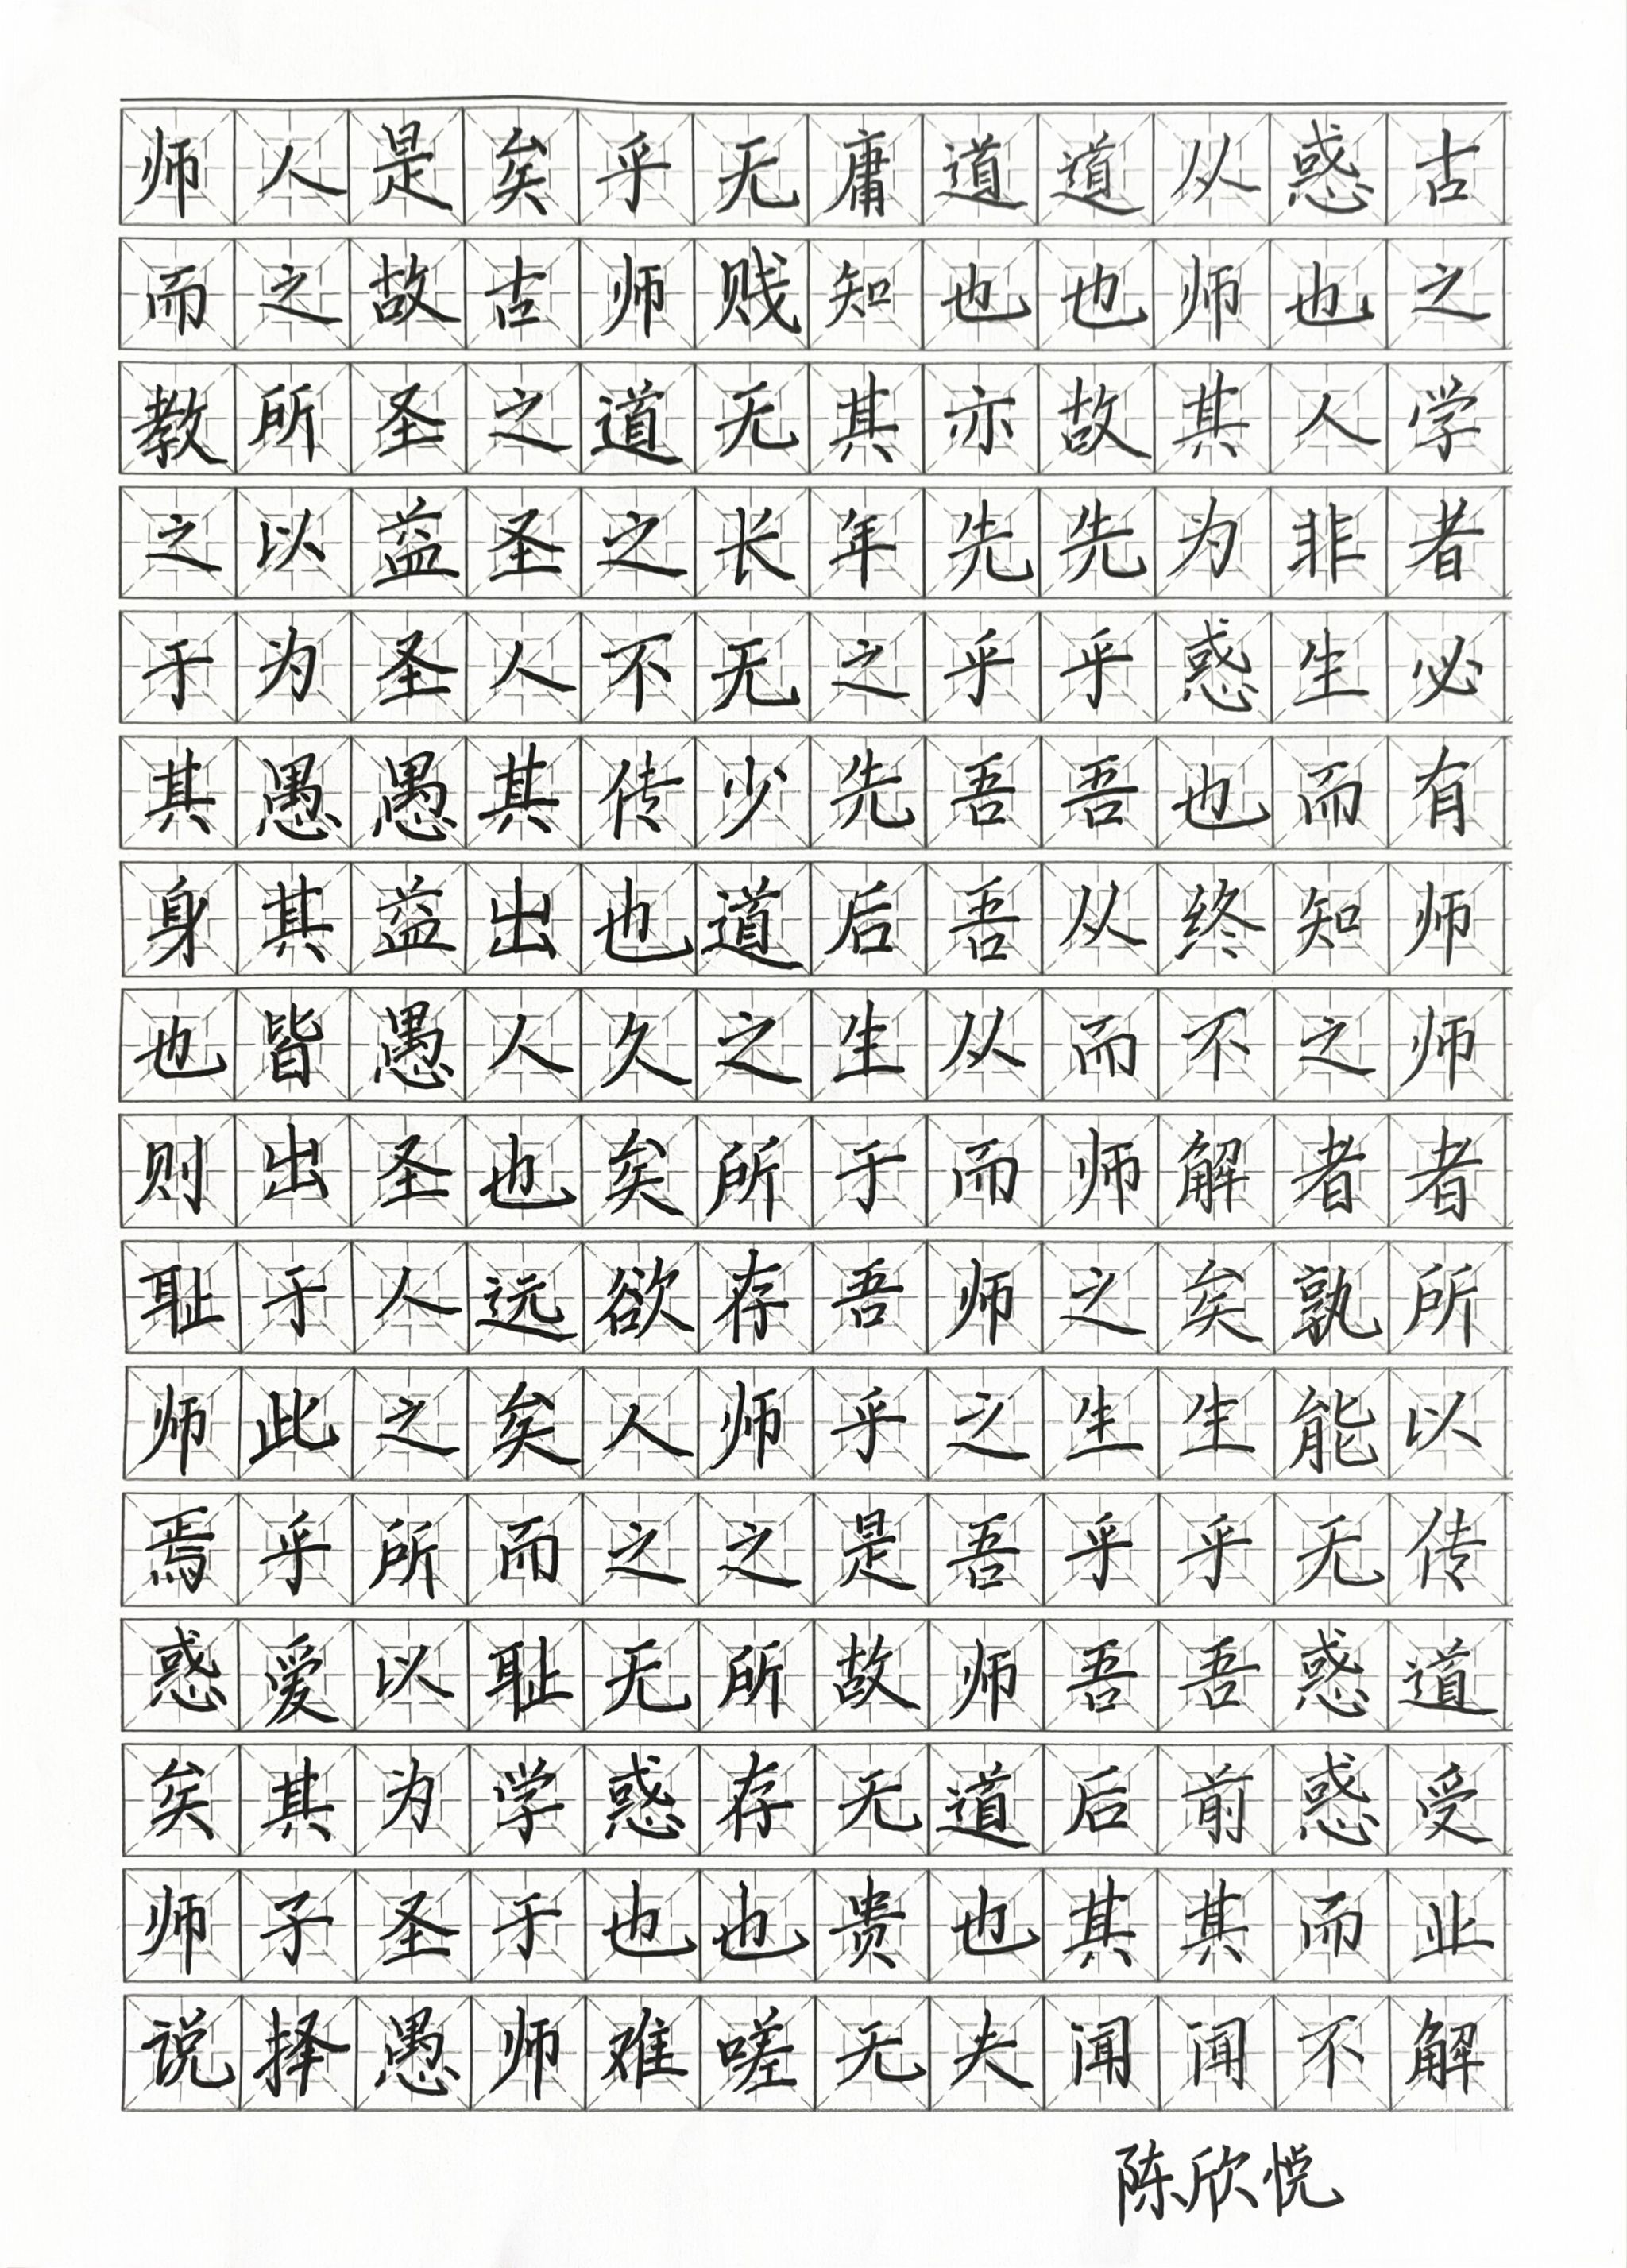 古之学者必有师师者所以传道受业解
惑也人非生而知之者孰能无惑惑而不
从师其为惑也终不解矣生乎吾前其闻
道也故先乎吾从而师之生乎吾后其闻
道也亦先乎吾吾从而师之吾师道也夫
庸知其年之先后生于吾乎是故无贵无
无贱无长无少道之所存师之所存也嗟
乎师道之不传也久矣欲人之无惑也难
矣古之圣人其出人也远矣而耻学于师
是故圣益圣愚益愚圣人之所以为圣愚
人之所以为愚其皆出于此乎爱其子择
师而教之于其身也则耻师焉惑矣师说
陈欣悦